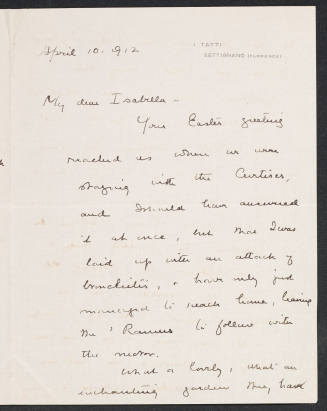 April 10. 1912
I TATTI
SETTIGNANO (FLORENCE)
My dear Isabella -
Your Easter greeting
reached us when we were
staying with the Curtises,
and I should have answered
it at once, but that I was
laid up with an attack of
bronchitis, & have only just
managed to reach home, leaving
the to follow with
the motor.
What a lovely, what an
enchanting garden they have